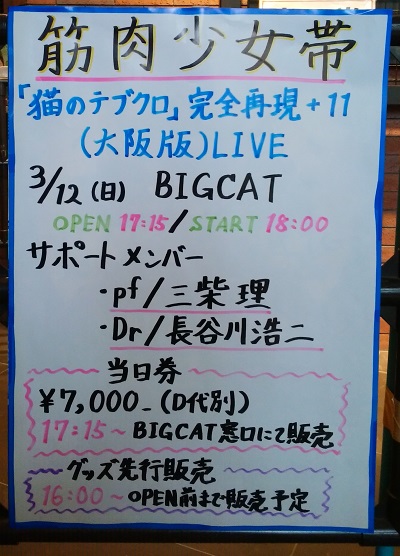 筋肉少女帯
「猫のテブクロ」完全再現+11
(大阪版)LIVE
3/12(日) BIGCAT
OPEN 17:15/START 18:00
サポートメンバー
・pf/三柴理
・Dr/長谷川浩二
当日券
¥7,000_(D代別)
17:15~BIGCAT窓口にて販売
グッズ先行販売
16:00~OPEN前まで販売予定